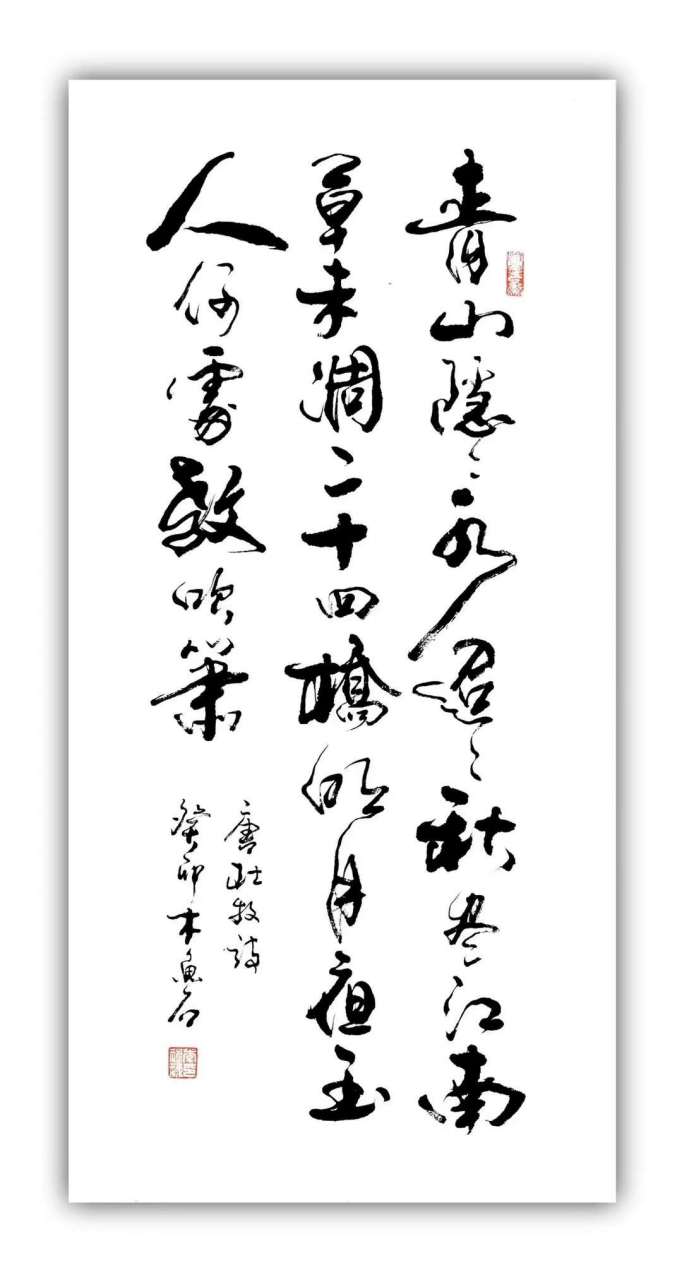 青山隱々水迢々秋尽江南
草未凋二十四橋明月夜玉
人何處教吹簫
唐杜牧詩
癸卯木魚石